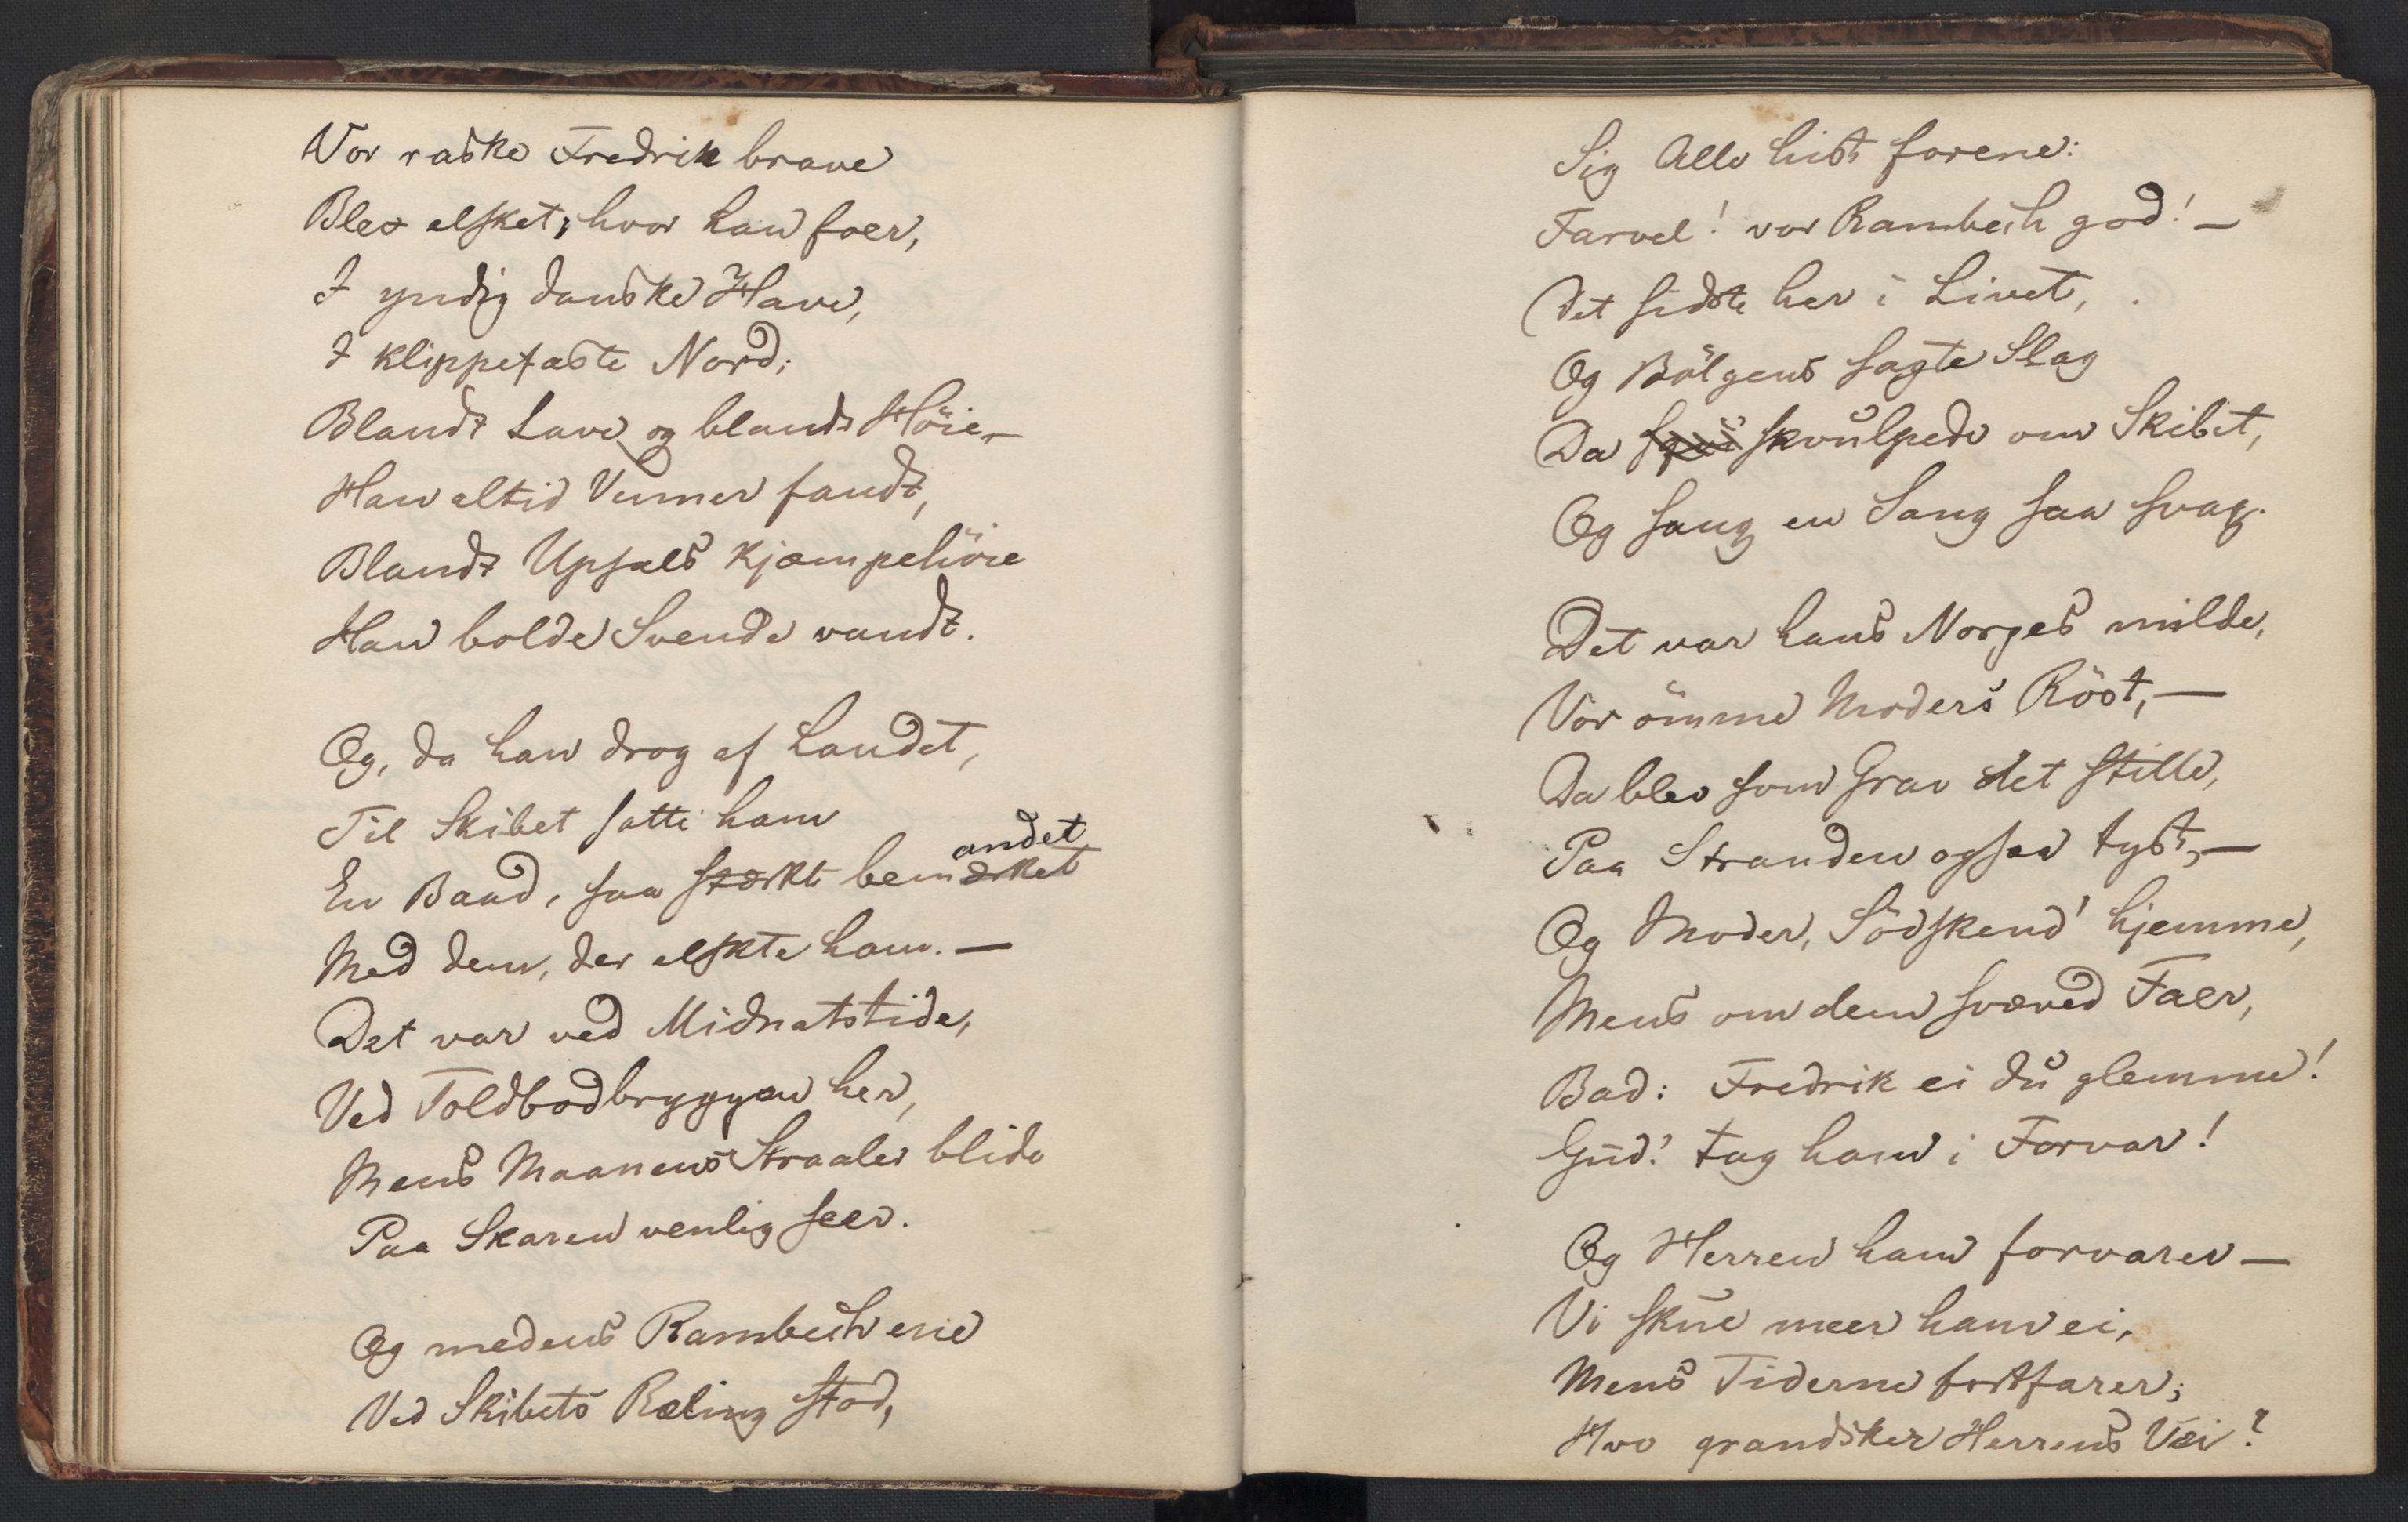 Vor raske Fredrik brave
Blev elsket, hvor han foer,
I yndig danske Have,
I klippefaste Nord;
Blandt Lave og blandt Höie—
Han altid Venner fandt,
Blandt Upsals Kjæmpehöie
Han bolde Svende vandt.
Og, da han drog af Landet,
Til Skibet satte ham
En Baad, saa stærkt bemærket
andet
Med dem, der elskte ham. —
Det var ved Midnatstide,
Ved Toldbodbryggen her,
Mens Maanens Straaler blide
Paa Skaren venlig seer.
Og medens Rambech ene
Ved Skibets Ræling stod,
Sig Alle hist forene:
Farvel! vor Rambech god! —
Det sidste her i Livet,
Og Bölgens sagte Slag
Da skvulpede om Skibet,
Og sang en Sang saa svag.
Det var hans Norges milde,
Vor ömme Moders Röst, —
Da blev som Grav det stille,
Paa Stranden ogsaa tyst, —
Og Moder, Södskend' hjemme,
Mens om dem svæved Faer,
Bad: Fredrik ei du glemme!
Gud! tag ham i Forvar!
Og Herren ham forvarer —
Vi skue meer ham ei,
Mens Tiderne fortfarer;
Hvo grandsker Herrens Vei?